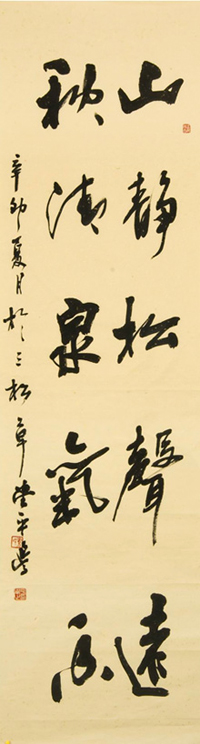 山静松聲遠
秋清泉氣香
辛卯夏月於三松草堂平